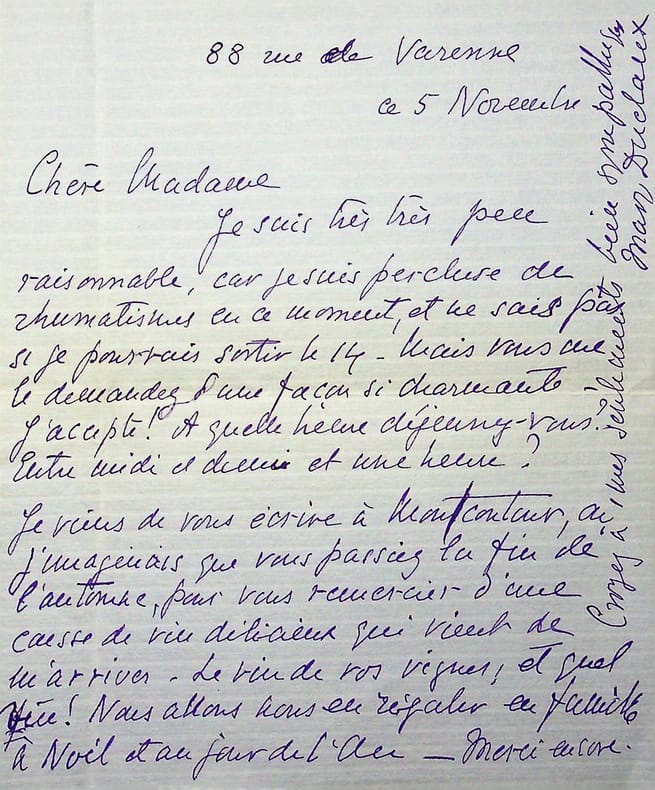 88 rue de Varenne
ce 5 Novembre
Chère Madame
Je suis très très peu
raisonnable, car je suis percluse de
rhumatismes en ce moment, et ne sais pas
si je pourrais sortir le 14 - Mais vous me
le demandez d'une façon si charmante -
J'accepte! A quelle heure déjeunez-vous?
Entre midi et demie et une heure?
Je viens de vous écrire à Montcontour, où
j'imaginais que vous passiez la fin de
l'automne, pour vous remercier d'une
caisse de vin délicieux qui vient de
m'arriver - Le vin de vos vignes, et quel
vin! Nous allons nous en régaler en famille
à Noël et au jour de l'An — Merci encore.
Croyez à mes sentiments bien sympathiques
Mary Duclaux